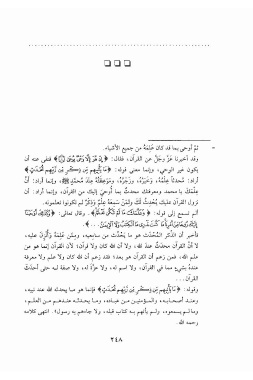 = ثمّ أوحى بما قد كان عَلِمَهُ من جميع الأشياء.
وقد أخبرنا عزّ وجلّ عن القرآن، فقال: ﴿إِنْ هُوَ إِلَّا وَحْيٌ يُوحَى﴾ فنفى عنه أن
يكون غير الوحي، وإنما معنى قوله: ﴿مَا يَأْتِيهِم مِّن ذِكْرٍ مِّن رَّبِّهِم مُّحْدَثٍ﴾
أراد: مُحدثاً عِلْمُه، وخَبَرُه، وزَجْرُه، ومَوعِظَتُه عند محمّدٍ ﷺ، وإنما أراد: أنّ
عِلْمَك يا محمد ومعرفتك محدثٌ بما أُوحِيَ إليك من القرآن، وإنما أراد: أن
نزول القرآن عليك يُحدِثُ لك ولمَنْ سمِعَهُ عِلْمٌ وذِكْرٌ لم تكونوا تعلمونه.
ألم تسمع إلى قوله: ﴿وَعَلَّمَكَ مَا لَمْ تَكُن تَعْلَمُ﴾. وقال تعالى: ﴿وَكَذَٰلِكَ أَوْحَيْنَا
إِلَيْكَ رُوحًا مِّنْ أَمْرِنَا مَا كُنتَ تَدْرِي مَا الْكِتَابُ وَلَا الْإِيمَانُ...﴾.
فأخبر أن الذِّكر المُحْدَث هو ما يَحْدُث من سامعيه، وممّن عَلِمَهُ وأُنزِل عليه،
لا أنّ القرآن محدَثٌ عند الله، ولا أن الله كان ولا قرآن؛ لأن القرآن إنما هو من
عِلم الله، فمن زعم أن القرآن هو بعد؛ فقد زعم أن الله كان ولا عِلم ولا معرفة
عنده بشيءٍ مما في القرآن، ولا اسم له، ولا عزّة له، ولا صفة له حتى أحدَثَ
القرآن...
وقوله: ﴿مَا يَأْتِيهِم مِّن ذِكْرٍ مِّن رَّبِّهِم مُّحْدَثٍ﴾ فإنما هو ما يُحدثه الله عند نبيه،
وعند أصحابه، والمؤمنين من عباده، وما يحدثه عندهم من العلم،
وما لم يسمعوه، ولم يأتهم به كتاب قبله، ولا جاءهم به رسول». انتهى كلامه
رحمه الله.
٢٤٨